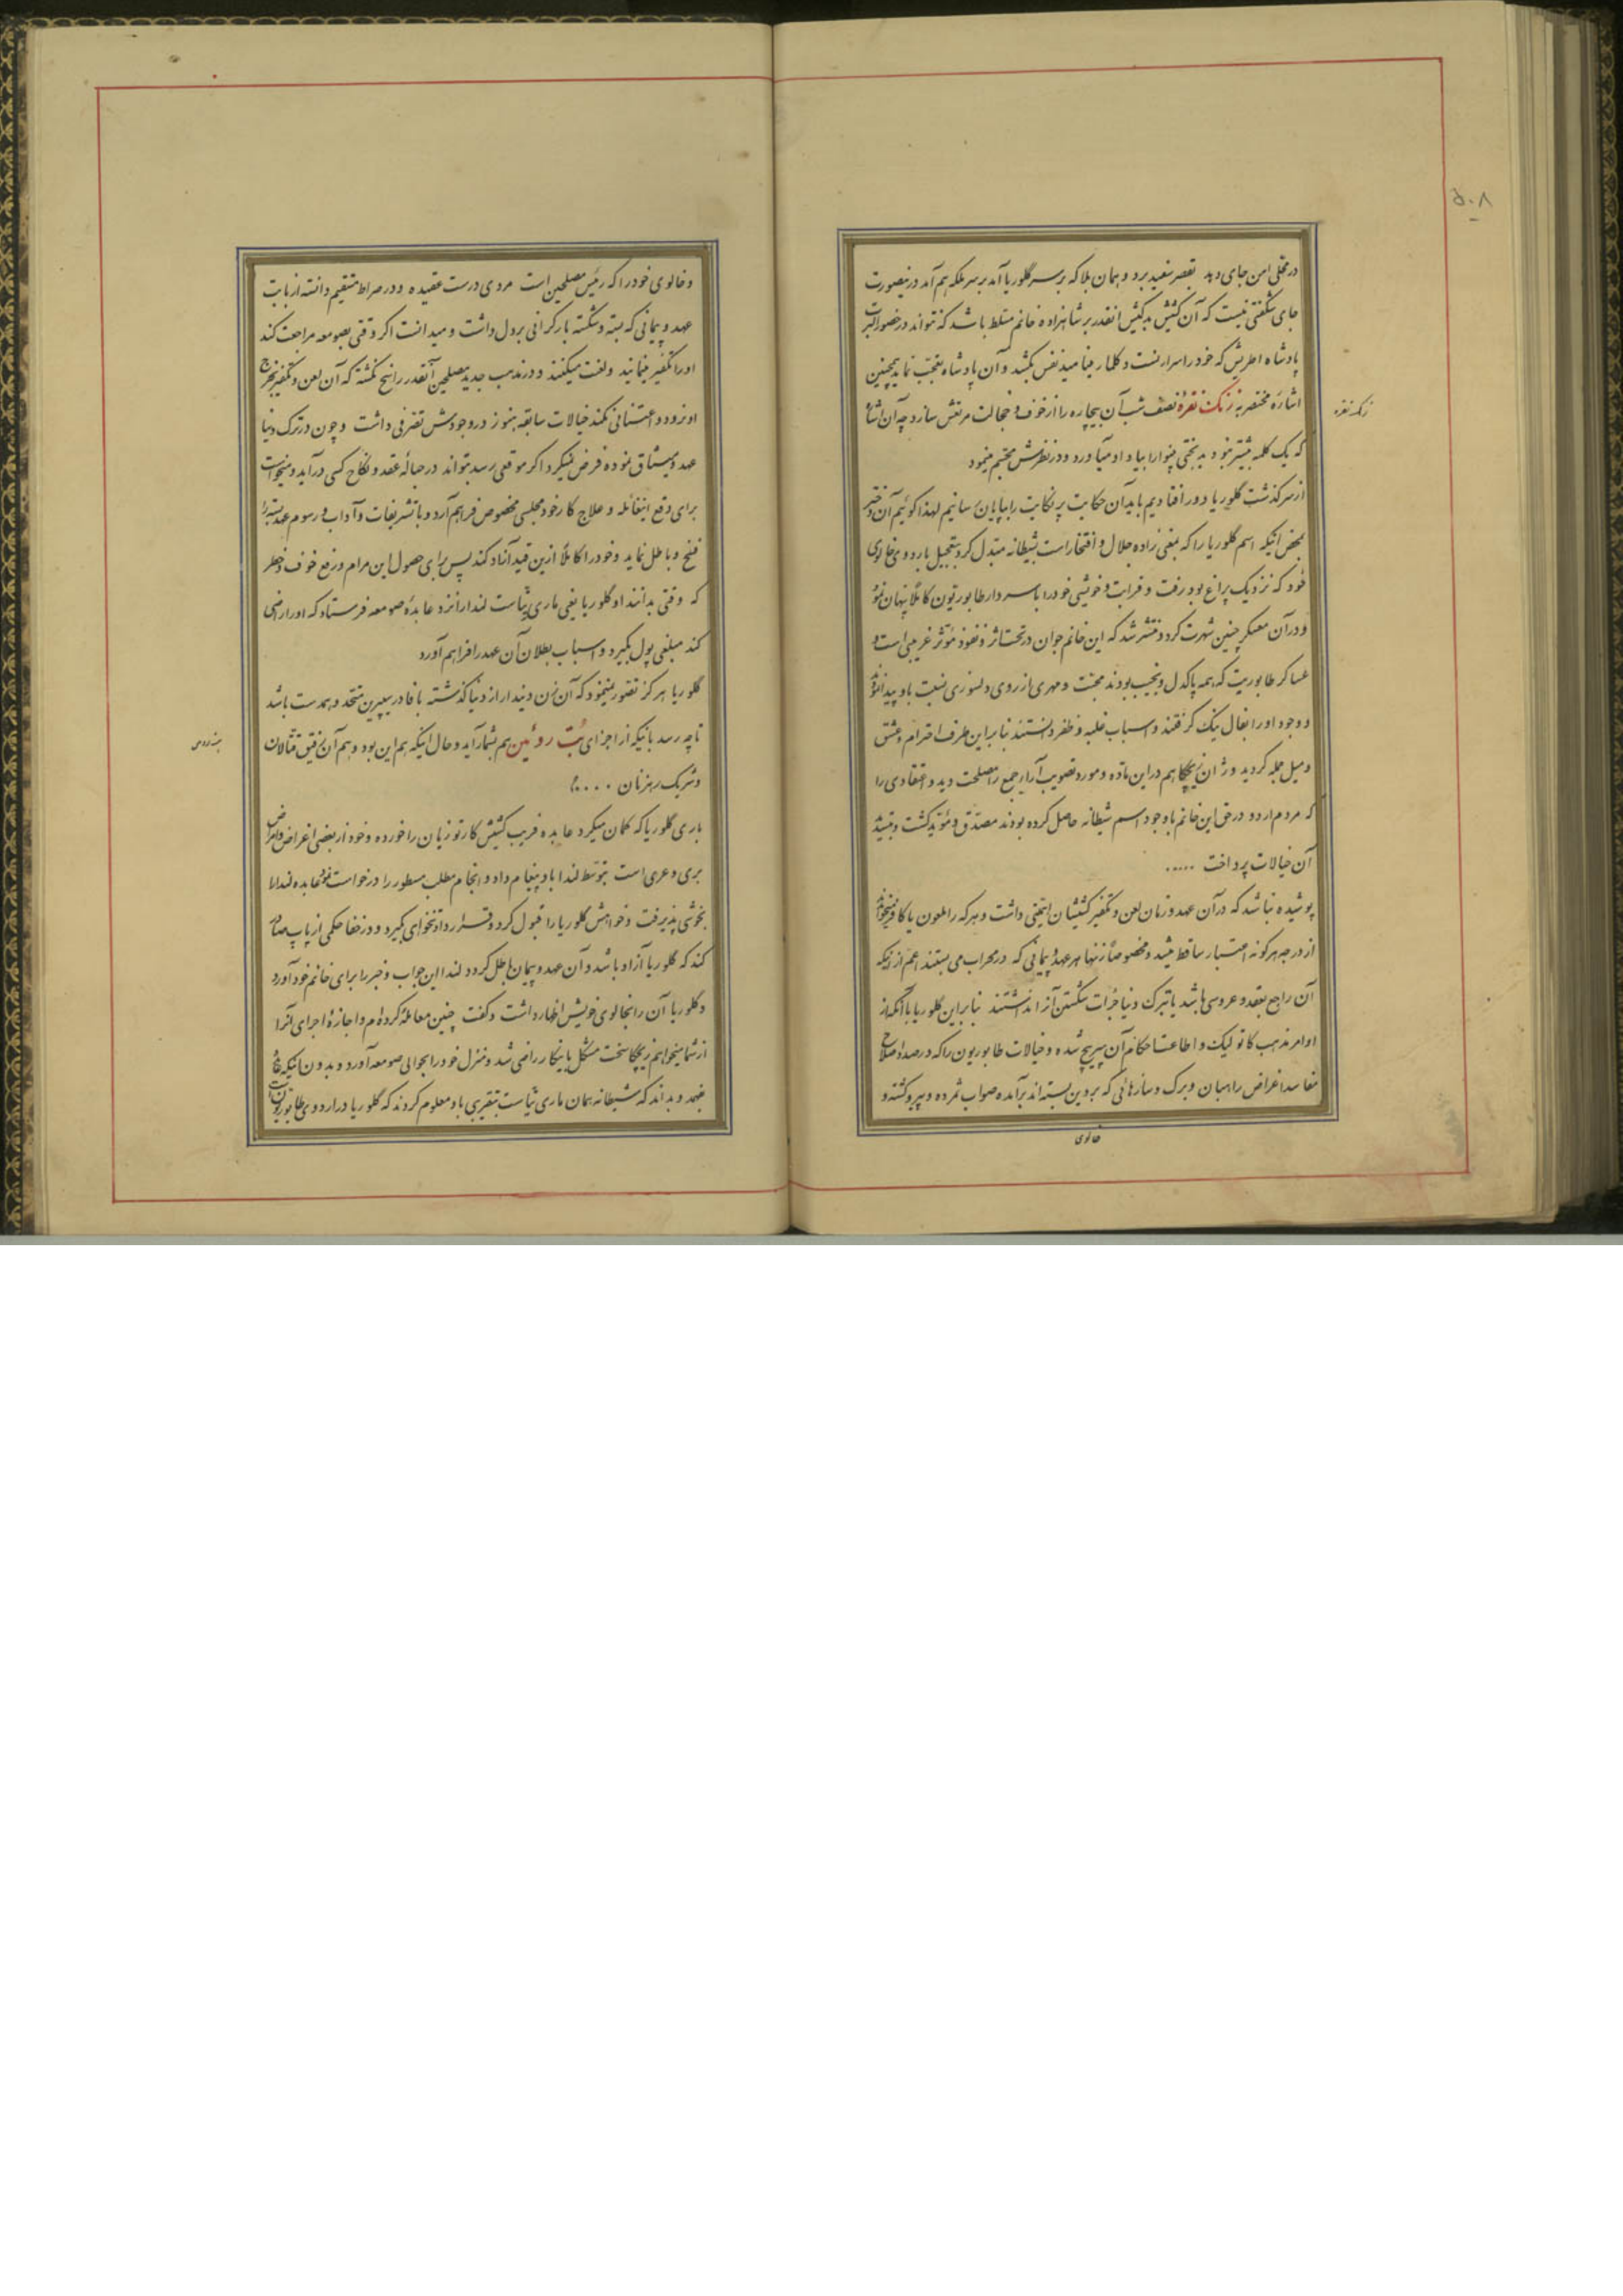 ۵۰۸
در محلی امن جای دهد بقصر سفید برد و همان بلا که بر سر گلوریا آمد بر سر ملکه هم آمد در نیصورت
جای شگفتی نیست که آن کشیش بدکیش انقدر بر شاهزاده خانم مسلط باشد که نتواند در حضور البرت
پادشاه اطریش که خود را اسرار بفس نکشد و آن پادشاه تعجب نماید همچنین
اشاره مختصر به زنگ نقره نصف شب آن بیچاره را از خوف و خجالت مرتعش سازد چه آن اشاره
زنگ نقره
که یک کلمه بیشتر نبود بدبختی بینوا را بیاد او میآورد و در نظرش مجسم مینمود
از سرگذشت گلوریا دور افتادیم باید آن حکایت پر نکایت را بپایان رسانیم لهذا گوئیم آن دختر
بمحض اینکه اسم گلوریا را که بمعنی زاده جلال و افتخار است بشیطانه مبتدل کرد بتعجیل باردوی خالوی
خود که نزدیک پراغ بود رفت و قرابت و خویشی خود را با سردار طابوریتون کاملاً پنهان نمود
و در آن معسکر چنین شهرت کرد و منتشر شد که این خانم جوان در تحت اثر و نفوذ مؤثر غریبی است و
عساکر طابوریت که همه پاکدل و نجیب بودند محبت و مهری از روی دلسوزی نسبت باو پیدا نموده
و وجود او را بفال نیک گرفتند و اسباب غلبه و ظفر دانستند بنابراین طرف احترام و عشق
و میل جمله گردید و ژان زیچکا هم در این ماده و مورد تصویب آراء جمع را مصلحت دید و اعتقادی را
که مردم اردو در حق این خانم با وجود اسم شیطانه حاصل کرده بودند مصدق و مؤید گشت و بتشیید
آن خیالات پرداخت .....
پوشیده نباشد که در آن عهد و زمان لعن و تکفیر کشیشان اهمیتی داشت و هر که را ملعون یا کافر میخواندند
از درجه هرگونه اعتبار ساقط میشد و مخصوصاً زنها هر عهد و پیمانی که در محراب می بستند اعم از اینکه
آن راجع بعقد و عروسی باشد یا بترک دنیا جرأت شکستن آنرا نداشتند بنابراین گلوریا با آنکه از
اوامر مذهب کاتولیک و اطاعت احکام آن سرپیچ شده و خیالات طابوریون را که در صدد اصلاح
مفاسد اغراض راهبان و برگ و سازهائی که بر دین بسته اند برآمده صواب شمرده و پیرو گشته و
خالوی
و خالوی خود را که رئیس مصلحین است مردی درست عقیده و در صراط مستقیم دانسته از بابت
عهد و پیمانی که بسته و شکسته بار گرانی بر دل داشت و میدانست اگر وقتی بصومعه مراجعت کند
او را تکفیر مینمایند و لعنت میکنند و در مذهب جدید مصلحین آنقدر راسخ نگشته که آن لعن و تکفیر بخرج
او نرود و اعتنائی نکند خیالات سابقه هنوز در وجودش تصرفی داشت و چون در ترک دنیا
عهد و میثاق نموده فرض نمیکرد اگر موقعی رسد بتواند در حباله عقد و نکاح کسی درآید و میخواست
برای دفع اینغائله و علاج کار خود مجلسی مخصوص فراهم آرد و با تشریفات و آداب و رسوم عهد بسته را
فسخ و باطل نماید و خود را کاملاً ازین قید آزاد کند پس برای حصول این مرام و رفع خوف و خطر
که وقتی بدانند او گلوریا یعنی ماری تیاست لندا را نزد عابده صومعه فرستاد که او را راضی
کند مبلغی پول بگیرد و اسباب بطلان آن عهد را فراهم آورد
گلوریا هرگز تصور نمینمود که آن زن دیندار از دنیا گذشته با فادر سیپرین متحد و همدست باشد
تا چه رسد بانیکه از اجزای بُت روئین هم بشمار آید و حال اینکه هم این بود و هم آن رفیق قتالان
و شریک رهزنان ....؟
باری گلوریا که گمان میکرد عابده فریب کشیش کارتوزیان را خورده و خود از بعضی اغراض و امراض
بری و عری است بتوسط لندا باو پیغام داد و انجام مطلب مسطور را درخواست نمود عابده لندا را
بخوشی پذیرفت و خواهش گلوریا را قبول کرد و قرار داد تنخواهی بگیرد و در خفا حکمی از پاپ صادر
کند که گلوریا آزاد باشد و آن عهد و پیمان باطل گردد لندا این جواب و خبر را برای خانم خود آورد
و گلوریا آن را بخالوی خویش اظهار داشت و گفت چنین معامله کرده ام و اجازه اجرای آنرا
از شما میخواهم زیچکا سخت مشکل باینکار راضی شد و منزل خود را بحوالی صومعه آورد و بدون اینکه عابده
بفهمد و بداند که شیطانه همان ماری تیاست بتقریبی باو معلوم کردند که گلوریا در اردوی طابوریون است